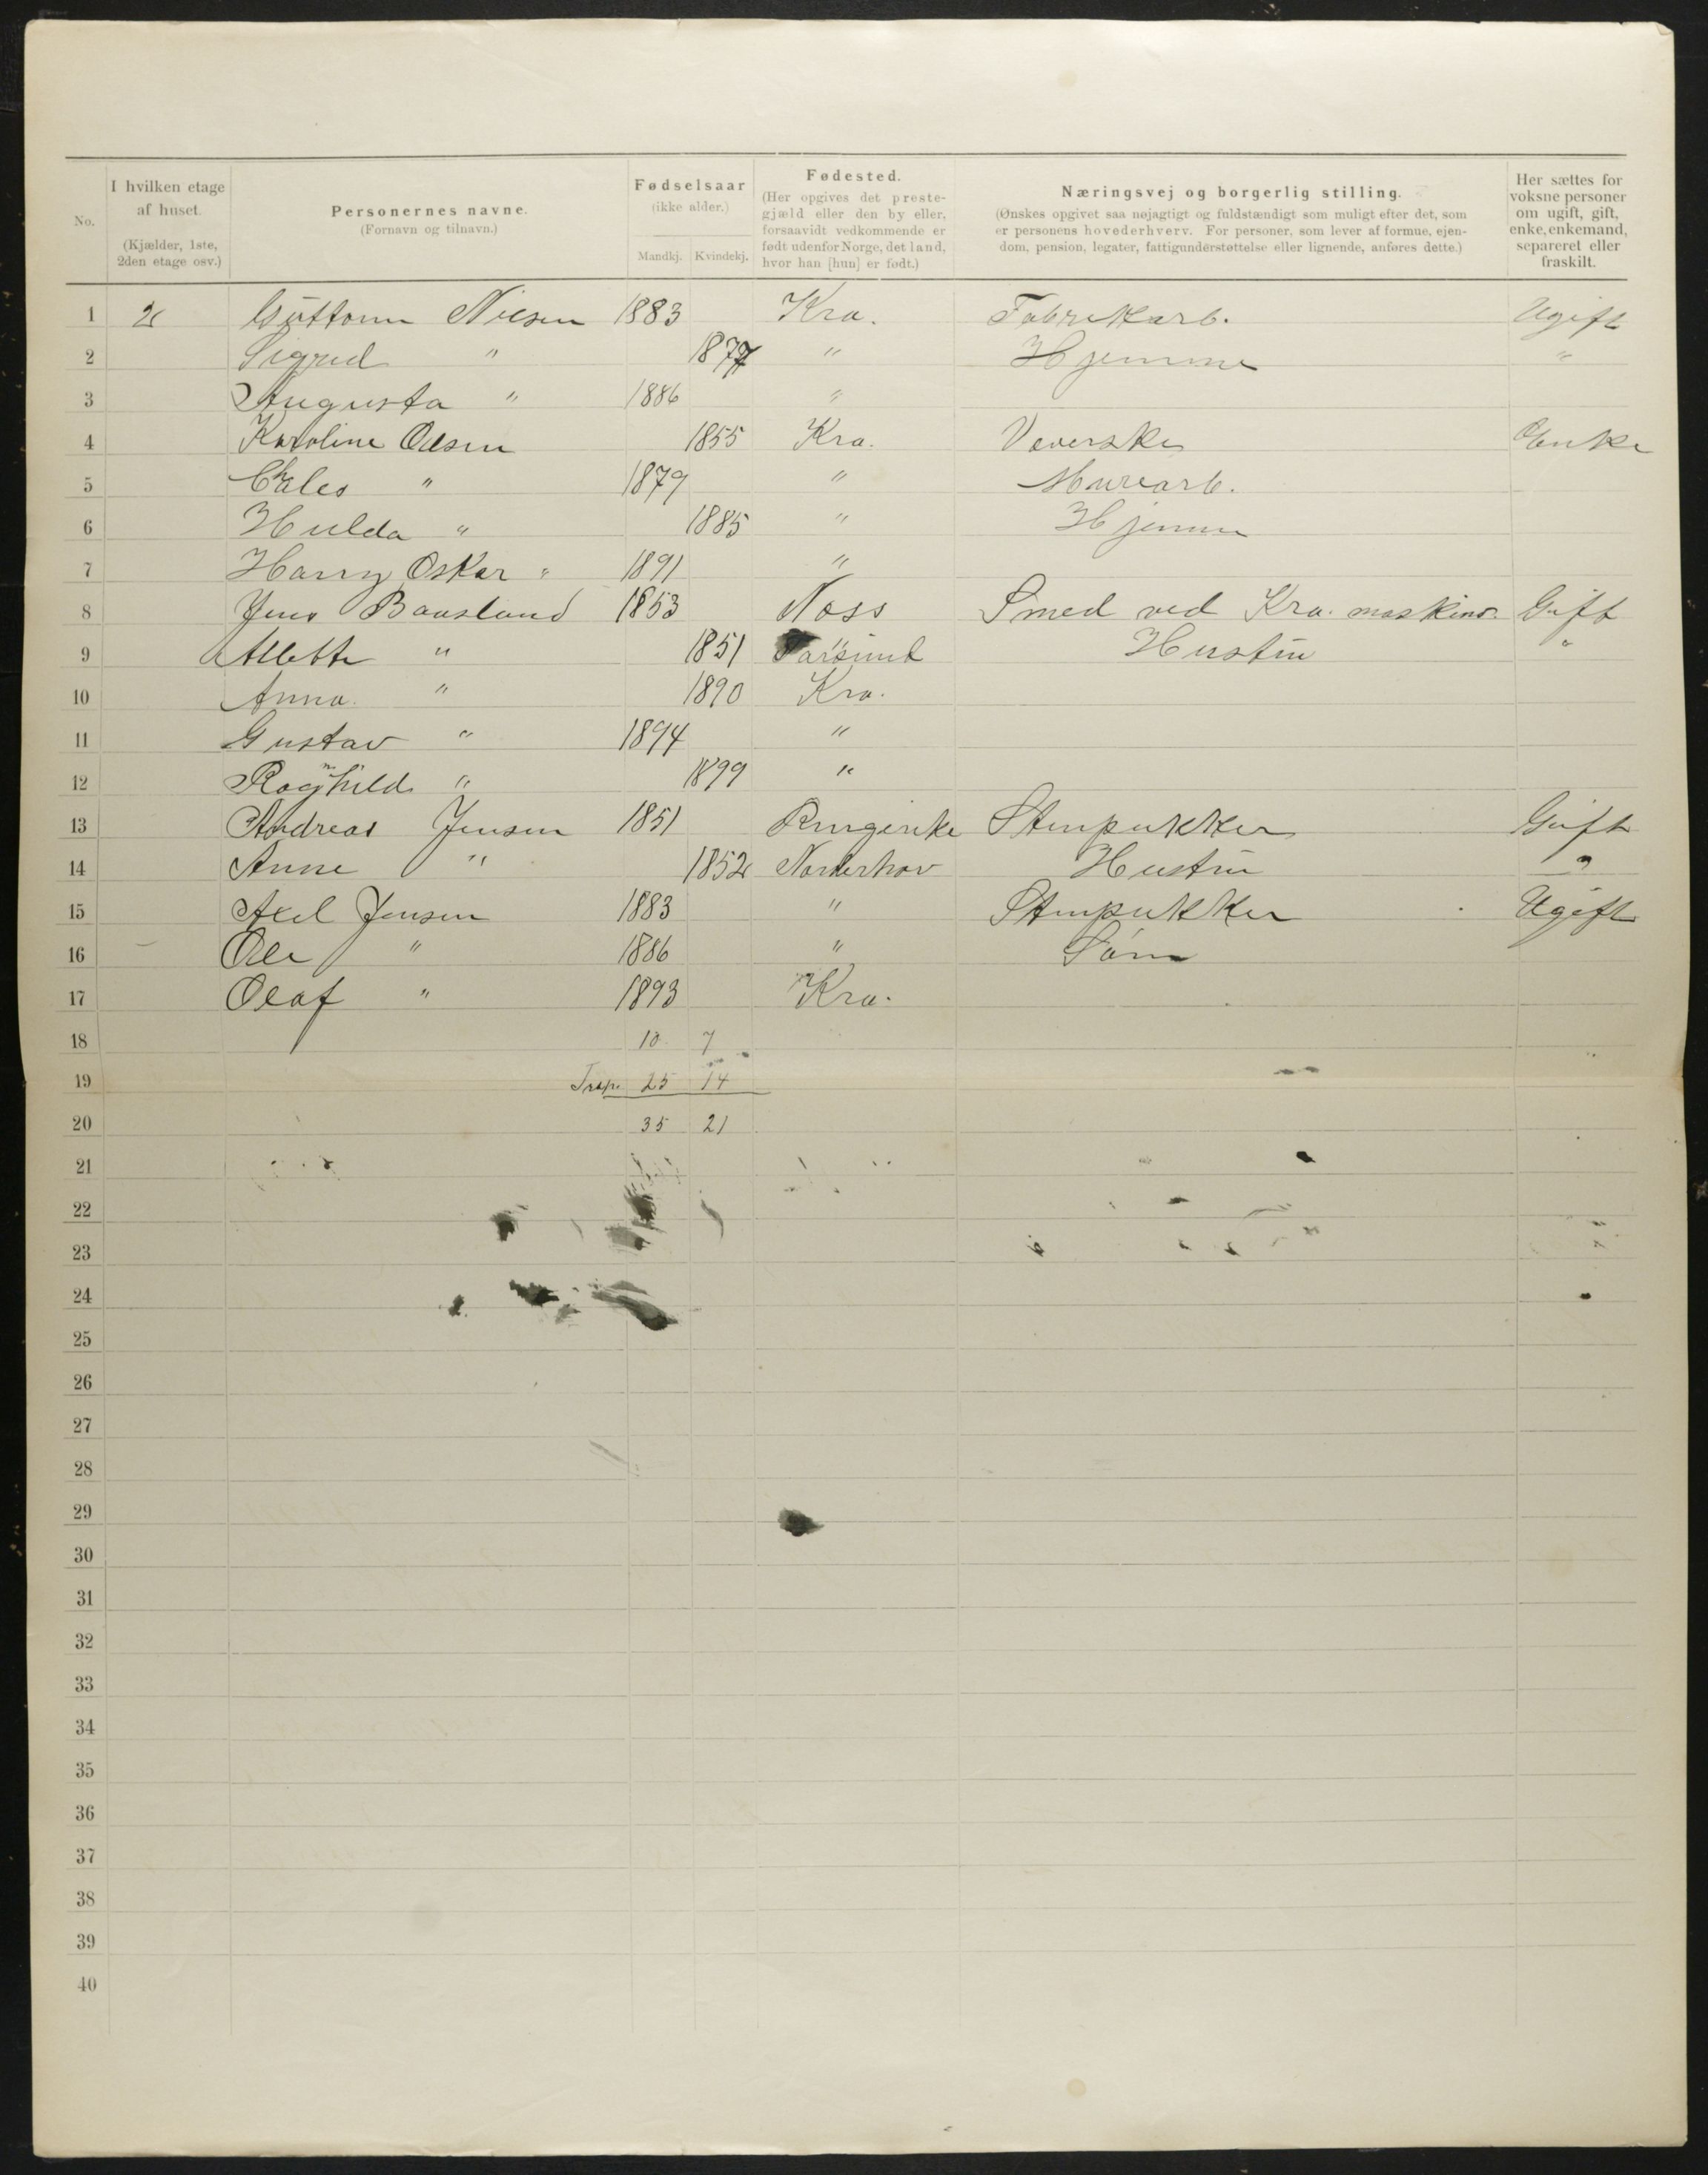 No. | I hvilken etage af huset. (Kjælder, 1ste, 2den etage osv.) | Personernes navne. (Fornavn og tilnavn.) | Fødselsaar (ikke alder.) Mandkj. Kvindekj. | Fødested. (Her opgives det prestegjæld eller den by eller, forsaavidt vedkommende er født udenfor Norge, det land, hvor han [hun] er født.) | Næringsvej og borgerlig stilling. (Ønskes opgivet saa nøjagtigt og fuldstændigt som muligt efter det, som er personens hovederhverv. For personer, som lever af formue, ejendom, pension, legater, fattigunderstøttelse eller lignende, anføres dette.) | Her sættes for voksne personer om ugift, gift, enke, enkemand, separeret eller fraskilt.
1 2 Guttorm Nilsen 1883 Kra. Fabrikarb. Ugift
2 Sigrid " 1877 " Hjemme "
3 Augusta " 1886 "
4 Karoline Olsen 1855 Kra. Væverske Enke
5 Chales " 1879 " Murearb.
6 Hulda " 1885 " Hjemme
7 Harry Oskar " 1891 "
8 Jens Baasland 1853 Næss Smed ved Kra. Gift
9 Allette " 1851 Farsund Hustru "
10 Anna " 1890 Kra.
11 Gustav " 1894 "
12 Ragnhild " 1899 "
13 Andreas Jensen 1851 Ringerike Stenpukker Gift
14 Anne " 1852 Norderhov Hustru "
15 Axel Jensen 1883 " Stenpukker Ugift
16 Ole " 1886 " Søn
17 Olaf " 1893 Kra.
18 10 7
19 Trsp. 25 14
20 35 21
21
22
23
24
25
26
27
28
29
30
31
32
33
34
35
36
37
38
39
40